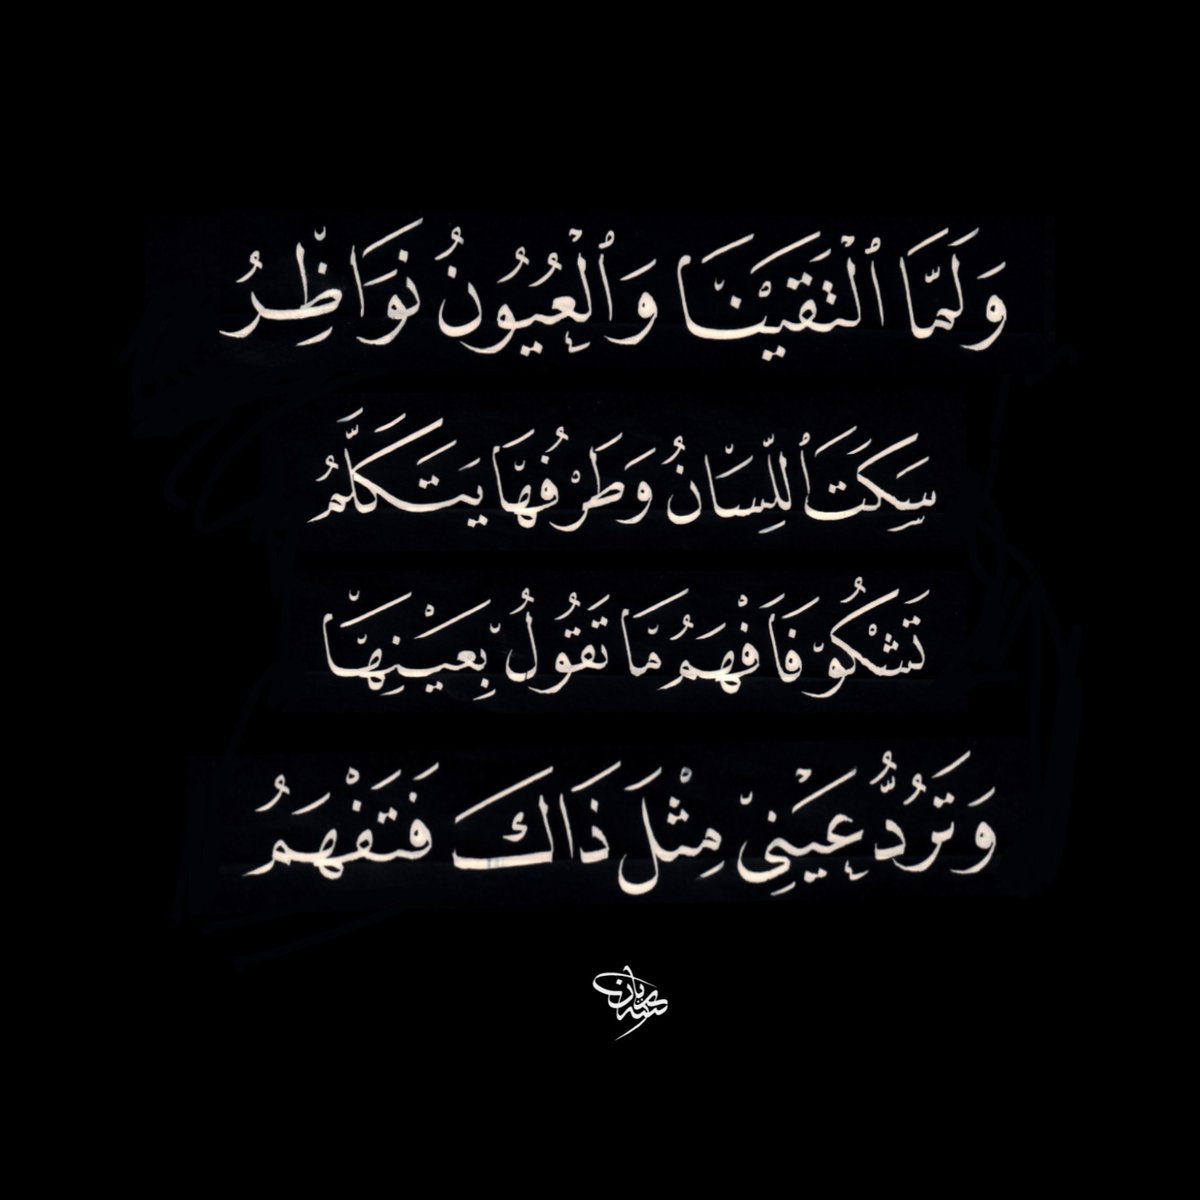 وَلَمَّا ٱلْتَقَيْنَا وَٱلْعُيُونُ نَوَاظِرُ
سَكَتَ ٱللِّسَانُ وَطَرْفُهَا يَتَكَلَّمُ
تَشْكُو فَأَفْهَمُ مَا تَقُولُ بِعَيْنِهَا
وَتَرُدُّ عَيْنِي مِثْلَ ذَاكَ فَتَفْهَمُ